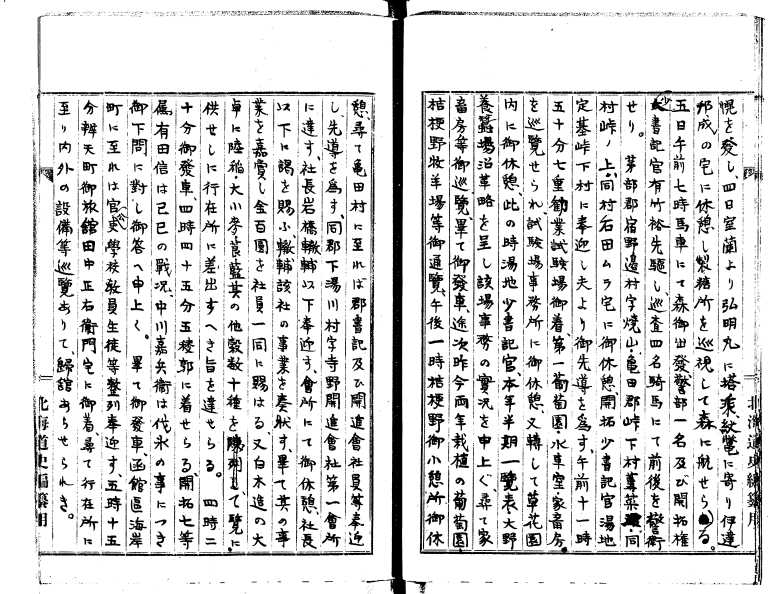 幌を發し、四日室蘭より弘明丸に塔乘紋鼈に寄り伊達
邦成の宅に休憩し製糖所を巡視して森に航せらる。
五日午前七時馬車にて森御出發警部一名及び開拓權
少書記官有竹裕先驅し、巡査四名騎馬にて前後を警衛
せり。 茅部郡宿野邊村字燒山、亀田郡峠下村蓴菜、同
村峠ノ上、同村石田ムラ宅に御休憩開拓少書記官湯地
定基峠下村に奉迎し夫より御先導を為す、午前十一時
五十分七重勸業試驗場御着、第一葡萄園、水車室家畜房
を巡覽せられ試驗場事務所に御休憩、又轉して草花園
内に御休憩、此の時湯地少書記官本年半期一覽表、大野
養蠶場沿革略を呈し該場事務の實況を申上ぐ、尋て家
畜房等御巡覽畢て御發車、途次昨今兩年栽植の葡萄園、
桔梗野牧羊場等御通覽、午後一時桔梗野御小憩所御休
北海道史編纂用
憩、尋て亀田村に至れば郡書記及び開進會社員等奉迎
し、先導を為す、同郡下湯川村字寺野開進會社第一會所
に達す、社長岩橋轍輔以下奉迎す、會所にて御休憩、社長
以下に謁を賜ふ、轍輔該社の事業を奏狀す、畢て其の事
業を嘉賞し金百圓を社員一同に賜はる、又白木造の大
卓に陸稲大小麥莨藍其の他穀數十種を陳列して覽に
供せしに行在所に差出すへき旨を達せらる。 四時二
十分御發車、四時四十五分五稜郭に着せらる、開拓七等
属有田信は己巳の戰況、中川嘉兵衞は伐氷の事につき
御下問に對し御答へ申上く。 畢て御發車、函館區海岸
町に至れは官吏學校教員生徒等整列奉迎す、五時十五
分辨天町御旅館田中正右衞門宅に御着尋て行在所に
至り内外の設備等巡覽ありて、歸舘あらせられき。
北海道史編纂用